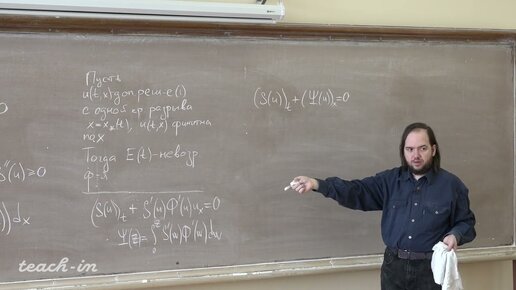 Пусть
u(t,x) доп реш-е (1)
с одной кр. разрыва
x=x_*(t), u(t,x) финитна
по x
Тогда E(t)-невозр
ф-я
(S(u))_t + S'(u)Φ'(u)u_x=0
Ψ(z)=∫_0^z S'(u)Φ'(u)du
(S(u))_t+(Ψ(u))_x=0
S''(u)≥0
))dx
teach-in